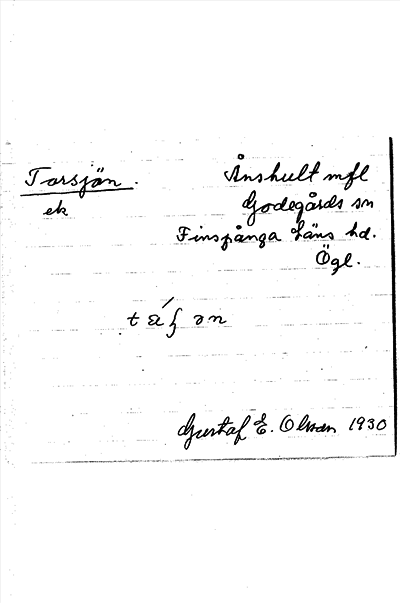 Torsjön.
ek
Ånshult mfl
Godegårds sn
Finspånga läns hd.
Ögl.
Gustaf E. Olsson 1930